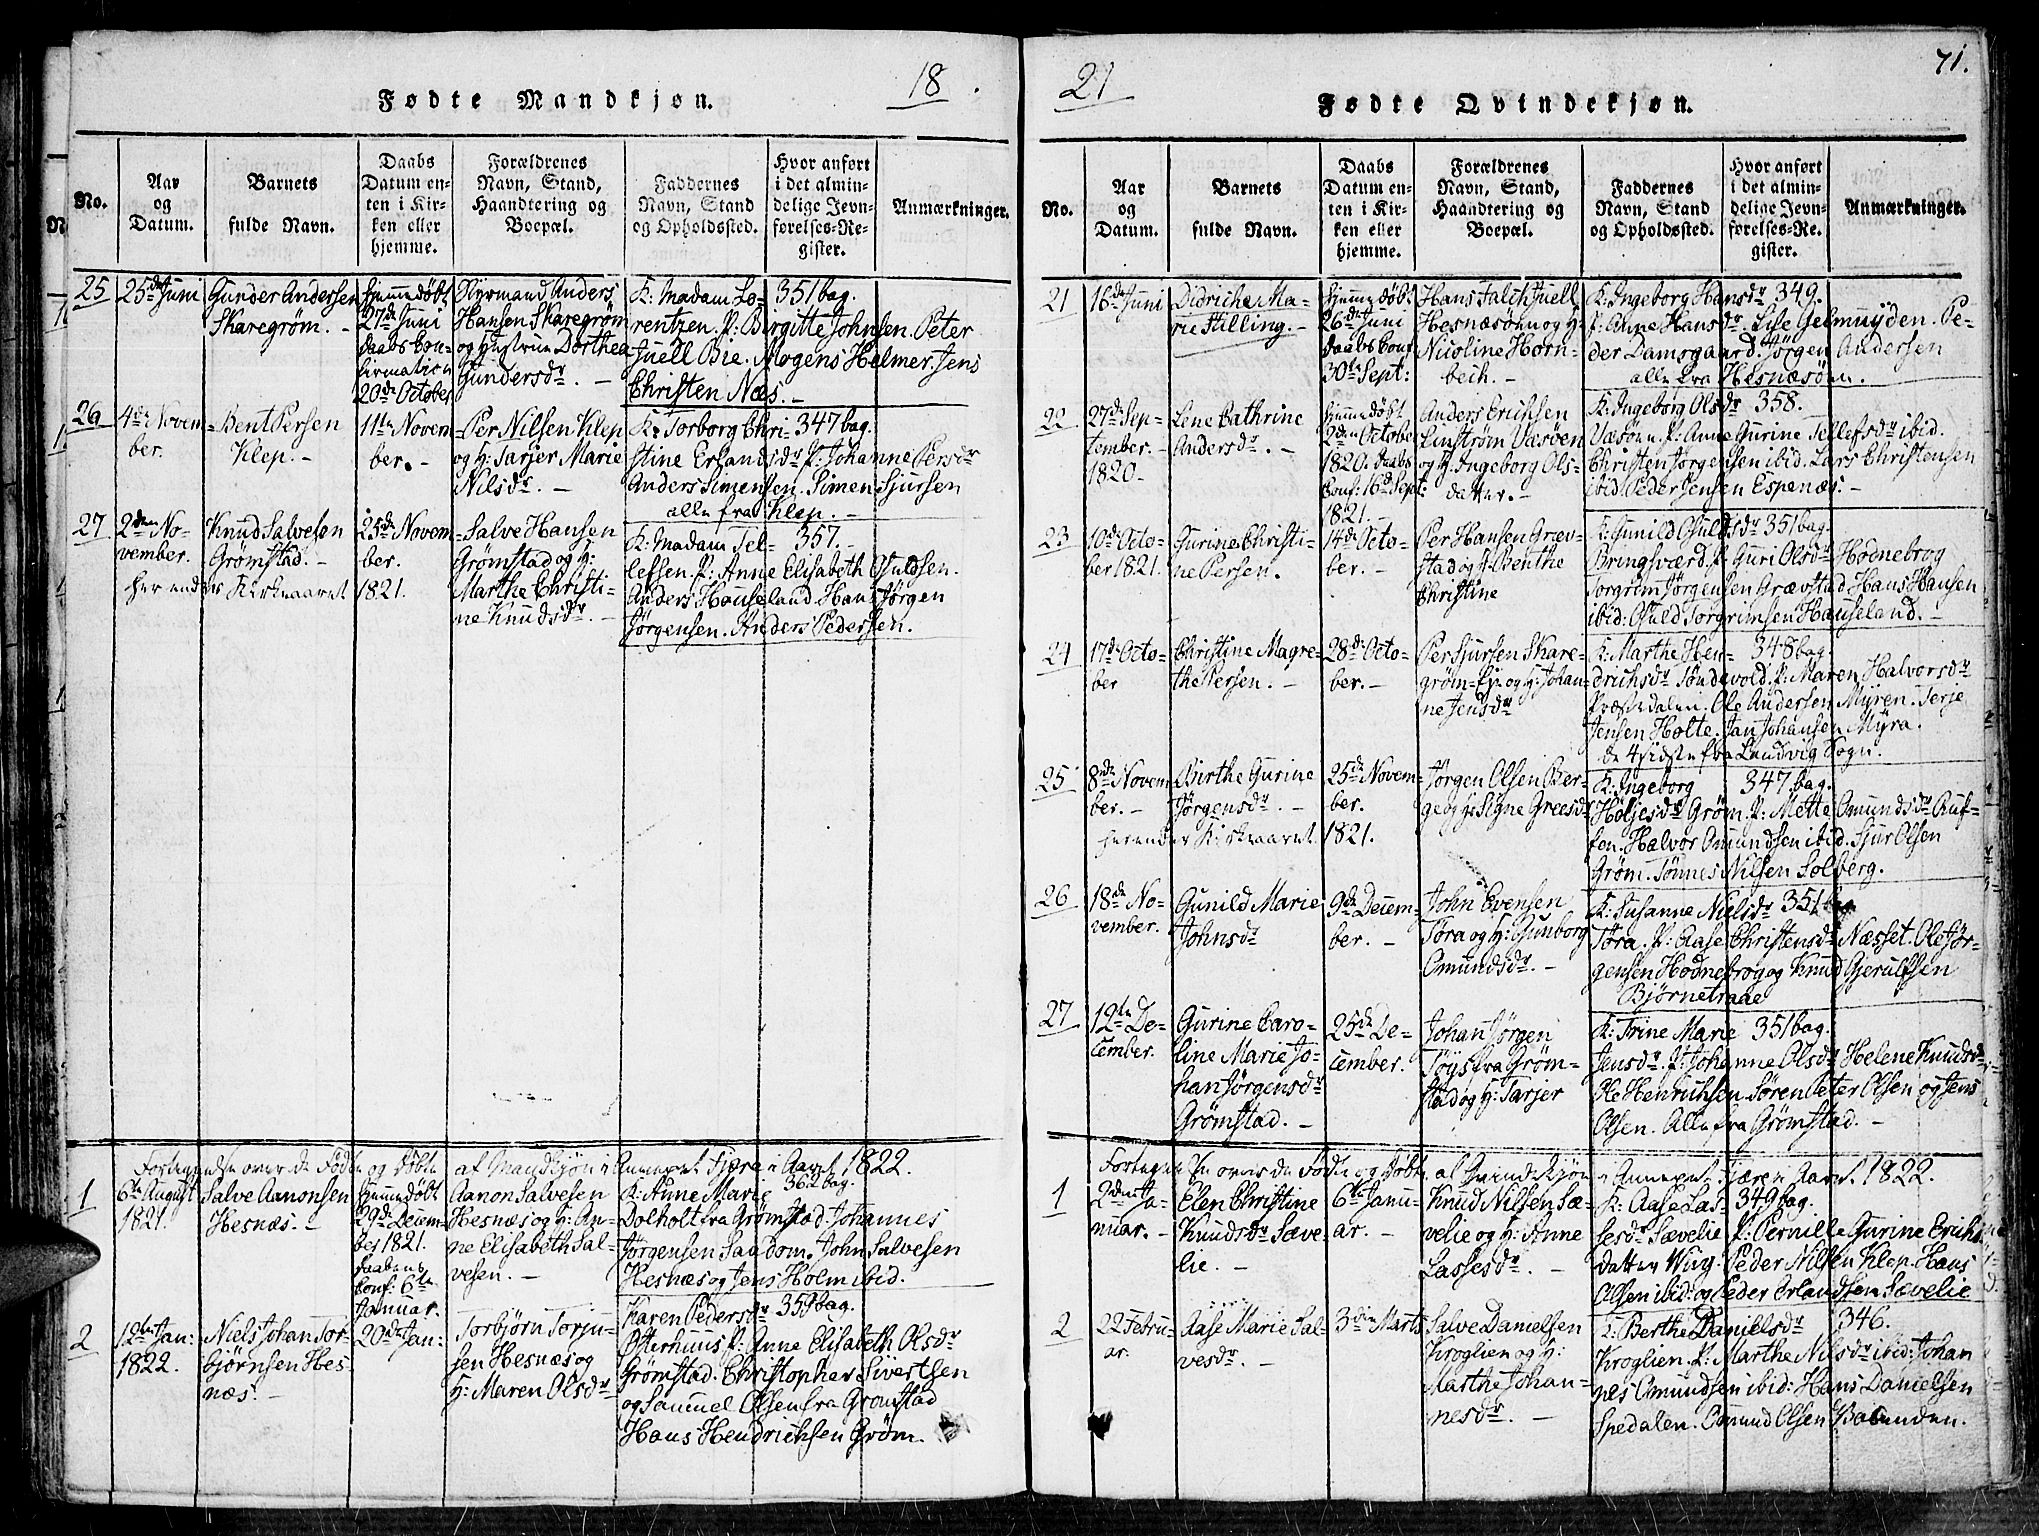 18
Fødte Mandkjøn.
No.
Aar
og
Datum.
Barnets
fulde Navn.
Daabs
Datum en-
ten i Kir-
ken eller
hjemme.
Forældrenes
Navn, Stand,
Haandtering og
Boepæl.
Faddernes
Navn, Stand
og Opholdssted.
Hvor anført
i det almin-
delige Jevn-
førelses-Re-
gister.
Anmærkninger.
25
25de Juni
Gunder Andersen
Skaregrøm. -
Hjemmedøbt
27de Juni
Daabs Con-
firmation
20de October
Styrmand Anders
Hansen Skaregrøm
og Hustrue Dorthea
Gundersdr. -
K: Madam Lo- 351 bag.
rentzen. P: Birgitte Johnsen. Peter
Juell Bie. Mogens Helmer. Jens
Christen Næs. -
26
4de Novem-
ber.
Bent Persen
Klep. -
11te Novem-
ber. -
Per Nilsen Klep
og H: Tarjer Marie
Nilsdr. -
K: Torborg Chri- 347 bag.
stine Erlandsdr P: Johanne Persdr
Anders Simensen. Simen Sjursen
alle fra Klep. -
27
2den No-
vember.
Knud Salvesen
Grømstad. -
25de Novem-
ber.
1821.
her ender Kirkeaaret
Salve Hansen
Grømstad og H:
Marthe Christi-
ne Knudsdr. -
K: Madam Tel- 357. -
lefsen. P: Anne Elisabeth Osuldsen.
Anders Hauseland. Hans Jørgen
Jørgensen. Anders Pedersen.
Fortegnelse over de Fødte og Døbte af Mandkjøn i Annexet Fjære i Aaret 1822.
1
6te August
1821.
Salve Aanonsen
Hesnæs. -
Hjemmedøbt
29de Decem-
ber 1821.
Daabens
Conf: 6te
Januar.
Aanon Salvesen
Hesnæs og H: An-
ne Elisabeth Sal-
vesen. -
K: Anne Marie 362 bag.
Dolholt fra Grømstad. Johannes
Jørgensen Saadom. John Salvesen
Hesnæs og Jens Holm ibid.
2
12te Jan:
1822.
Niels Johan Tor-
bjørnsen Hes-
næs. -
20de Jan:
Torbjørn Torju-
sen Hesnæs og
H: Maren Olsdr
Karen Pedersdr 359 bag.
Østerhuus P: Anne Elisabeth Olsdr
Grømstad. Christopher Sivertsen
og Samuel Olsen fra Grømstad
Hans Hendrichsen Grøm.
21
71.
Fødte Qvindekjøn.
No.
Aar
og
Datum.
Barnets
fulde Navn.
Daabs
Datum en-
ten i Kir-
ken eller
hjemme.
Forældrenes
Navn, Stand,
Haandtering og
Boepæl.
Faddernes
Navn, Stand
og Opholdssted.
Hvor anført
i det almin-
delige Jevn-
førelses-Re-
gister.
Anmærkninger.
21
16de Juni
Didriche Ma-
rie Stilling. -
Hjemmedøbt
26de Juni
Daabs Conf
30te Sept:
Hans Falch Juell
Hesnæsøen og H:
Nicoline Horn-
bech. -
K: Ingeborg Hansdr 349.
P: Anne Hansdr. Lise Gelmuyden. Pe-
der Damsgaard. Jørgen Andersen
alle fra Hesnæsøen.
22
27de Sep-
tember. -
1820.
Lene Cathrine
Andersdr. -
Hjemmedøbt
2den October
1820. Daabs
Conf: 16de Sept:
1821.
Anders Erichsen
Linstrøm Væsøen
og H: Ingeborg Ols-
datter. -
K: Ingeborg Olsdr 358.
Væsøen. P: Anne Gurine Tellefsdr ibid.
Christen Jørgensen ibid. Lars Christensen
ibid. Peder Jensen Espenæs. -
23
10de Octo-
ber 1821.
Gurine Christi-
ne Persen.
14de Octo-
ber. -
Per Hansen Græv-
stad og H: Benthe
Christine
K: Gunild Osuldsdr 351 bag.
Bringsværd. P: Guri Olsdr Hodnebrog
Torgrim Jørgensen Grævstad. Hans Hansen
ibid: Osuld Torgrimsen Hauseland. -
24
17de Octo-
ber
Christine Magre-
the Persen. -
28de Octo-
ber. -
Per Sjursen Skare-
grøm- Eje og H: Johan-
ne Jensdr
K: Marthe Hen- 348 bag.
drichsdr Tøndevold. P: Maren Halvorsdr
Præstedalen. Ole Andersen Myren. Terje
Jensen Holte. Jan Johansen Myra.
de 4 sidste fra Landvig Sogn.
25
8nde Novem-
ber. -
Birthe Gurine
Jørgensdr. -
25de Novem-
ber.
1821.
her ender Kirkeaaret
Jørgen Olsen Ber-
ge og H: Signe Greesdr
K: Ingeborg 347 bag.
Holjesdr Grøm. P: Mette Omundsdr Ruf-
fen. Halvor Omundsen ibid. Sjur Olsen
Grøm. Tønnes Nilsen Solberg.
26
18de No-
vember.
Gunild Marie
Johnsdr
9de Decem-
ber. -
John Evensen
Tøra og H: Gunborg
Omundsdr. -
K: Susanne Nielsdr 351 bag
Tøra. P: Aase Christensdr Næsset. Ole Jør-
gensen Hodnebrog og Knud Gjerulfsen
Bjørnetraae
27
12te De-
cember.
Gurine Caro-
line Marie Jo-
han Jørgensdr
Grømstad. -
25de De-
cember.
Johan Jørgen
Tøys fra Grøm-
stad og H: Tarjer
K: Trine Marie 351 bag.
Jensdr. P: Johanne Olsdr Helene Knudsdr
Ole Henrichsen. Søren Peter Olsen og Jens
Olsen. Alle fra Grømstad. -
Fortegnelse over de Fødte og Døbte af Qvindekjøn i Annexet Fjære i Aaret 1822.
1
2den Ja-
nuar. -
Elen Christine
Knudsdr Sæve-
lie. -
6te Janu-
ar. -
Knud Nilsen Sæ-
velie og H: Anne
Lassesdr. -
K: Aase Las- 349 bag.
sesdr Sævelie P: Pernille Gurine Erichs
datter Wiig. Peder Nilsen Klep. Hans
Olsen ibid: og Peder Erlandsen Sævelie
2
22 Febru-
ar.
Aase Marie Sal-
vesdr. -
3die Marts
Salve Danielsen
Kroglien og H:
Marthe Johan-
nesdr. -
K: Berthe Danielsdr 346.
Kroglien. P: Marthe Nilsdr ibid: Johan
nes Omundsen ibid: Hans Danielsen
Spedalen. Omund Olsen Baanden.